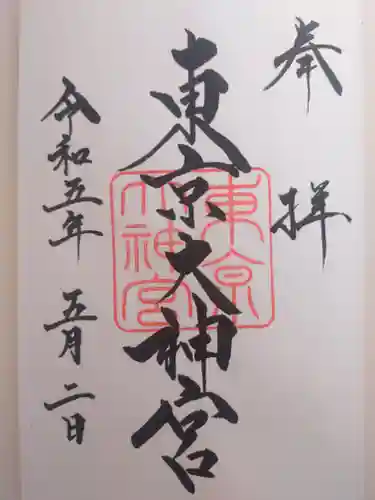 奉拝
東京大神宮
東京大神宮
令和五年五月二日